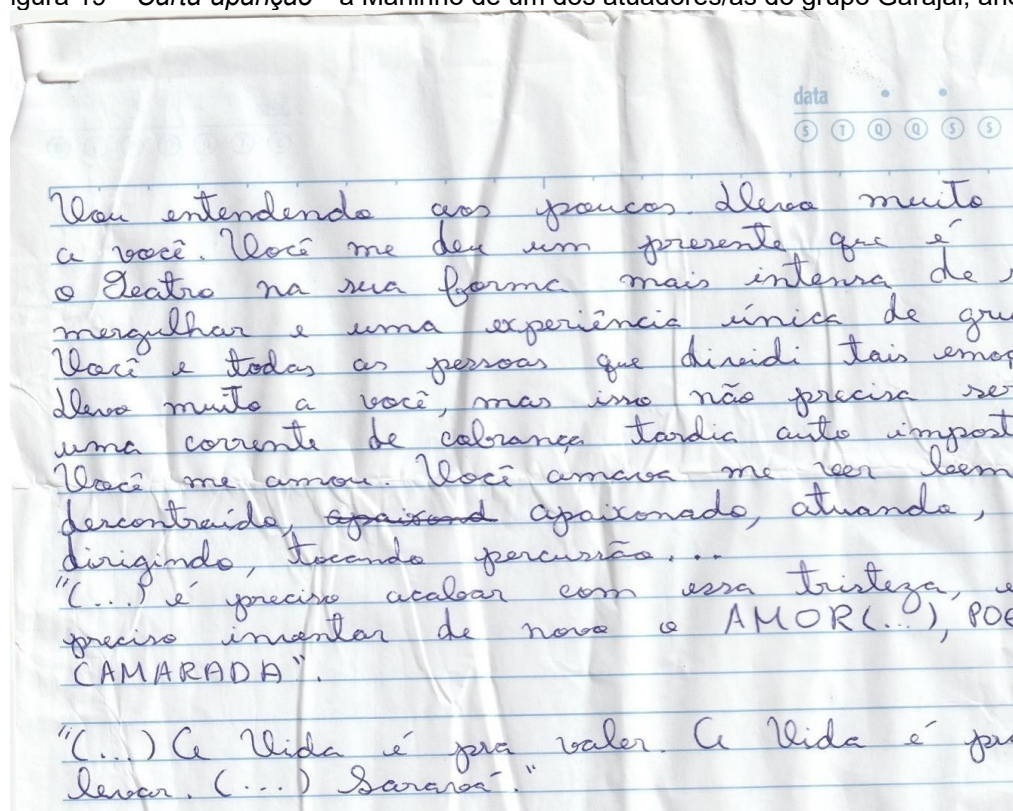 igura 19 – "Carta aparição" a Maninho de um dos atuadores/as do grupo Garajal, ano
data
S T Q Q S S
Vou entendendo aos poucos. Devo muito
a você. Você me deu um presente que é
o Teatro na sua forma mais intensa de
mergulhar e uma experiência única de gru
Você e todas as pessoas que dividi tais emoç
Devo muito a você, mas isso não precisa ser
uma corrente de cobrança tardia auto impost
Você me amou. Você amava me ver bem
descontraído, apaixond apaixonado, atuando,
dirigindo, tocando percussão...
"(...) é preciso acabar com essa tristeza, é
preciso inventar de novo o AMOR(...), POE
CAMARADA".
"(...) A Vida é pra valer. A Vida é pra
levar. (...) Saravá."